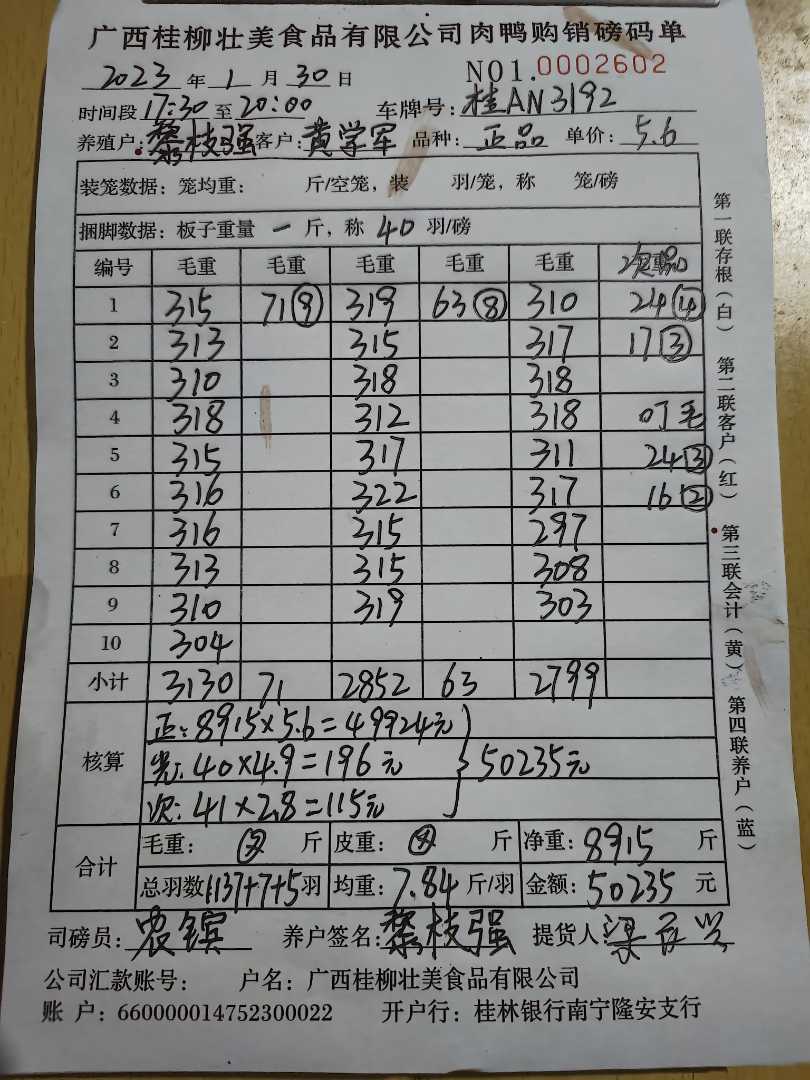 广西桂柳壮美食品有限公司肉鸭购销磅码单
2023 年 1 月 30 日 NO1.0002602
时间段 17:30 至 20:00 车牌号: 桂AN3192
养殖户: 黎枝强 客户: 黄学军 品种: 正品 单价: 5.6
装笼数据: 笼均重: 斤/空笼, 装 羽/笼, 称 笼/磅
捆脚数据: 板子重量 一 斤, 称 40 羽/磅
编号 毛重 毛重 毛重 毛重 毛重 次品
1 315 71⑨ 319 63⑧ 310 24④
2 313 315 317 17③
3 310 318 318
4 318 312 318 叮毛
5 315 317 311 24③
6 316 322 317 16②
7 316 315 297
8 313 315 308
9 310 319 303
10 304
小计 3130 71 2852 63 2799
核算 正: 8915×5.6=49924元
光: 40×4.9=196元 } 50235元
次: 41×2.8=115元
合计 毛重: 斤 皮重: 斤 净重: 8915 斤
总羽数 1137+7+5 羽 均重: 7.84 斤/羽 金额: 50235 元
司磅员: 农镔 养户签名: 黎枝强 提货人: 梁
公司汇款账号: 户名: 广西桂柳壮美食品有限公司
账 户: 660000014752300022 开户行: 桂林银行南宁隆安支行
第一联存根(白) 第二联客户(红) 第三联会计(黄) 第四联养户(蓝)